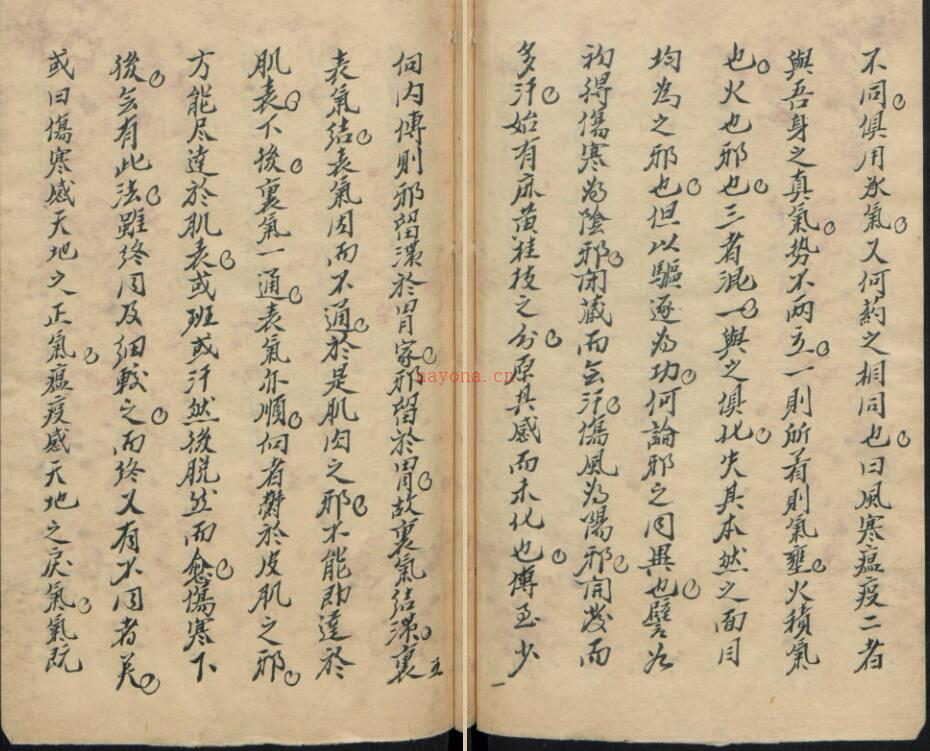 不同俱用承氣又何药之相同也曰風寒瘟疫二者
與吾身之真氣势不两立一則所着則氣壅火積氣
也火也邪也三者混一與之俱化失其本然之面目
均為之邪也但以驅逐為功何論邪之同異也譬如
初得傷寒為陰邪闭藏而无汗傷風為陽邪開发而
多汗始有麻黄桂枝之分原其感而未化也傳至少
向内傳則邪留滯於胃家邪留於胃故裏氣结滯裏
表氣结表氣因而不通於是肌肉之邪不能即達於
肌表下後裏氣一通表氣亦順向者鬱於皮肌之邪
方能尽達於肌表或班或汗然後脱然而愈傷寒下
後无有此法雖终同及细較之而终又有不同者矣
或曰傷寒感天地之正氣瘟疫感天地之戾氣氣既
五
一
nayona.cn